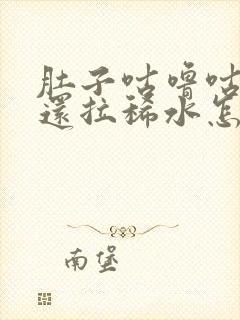 肚子咕嚕咕
還拉稀水怎
南堡